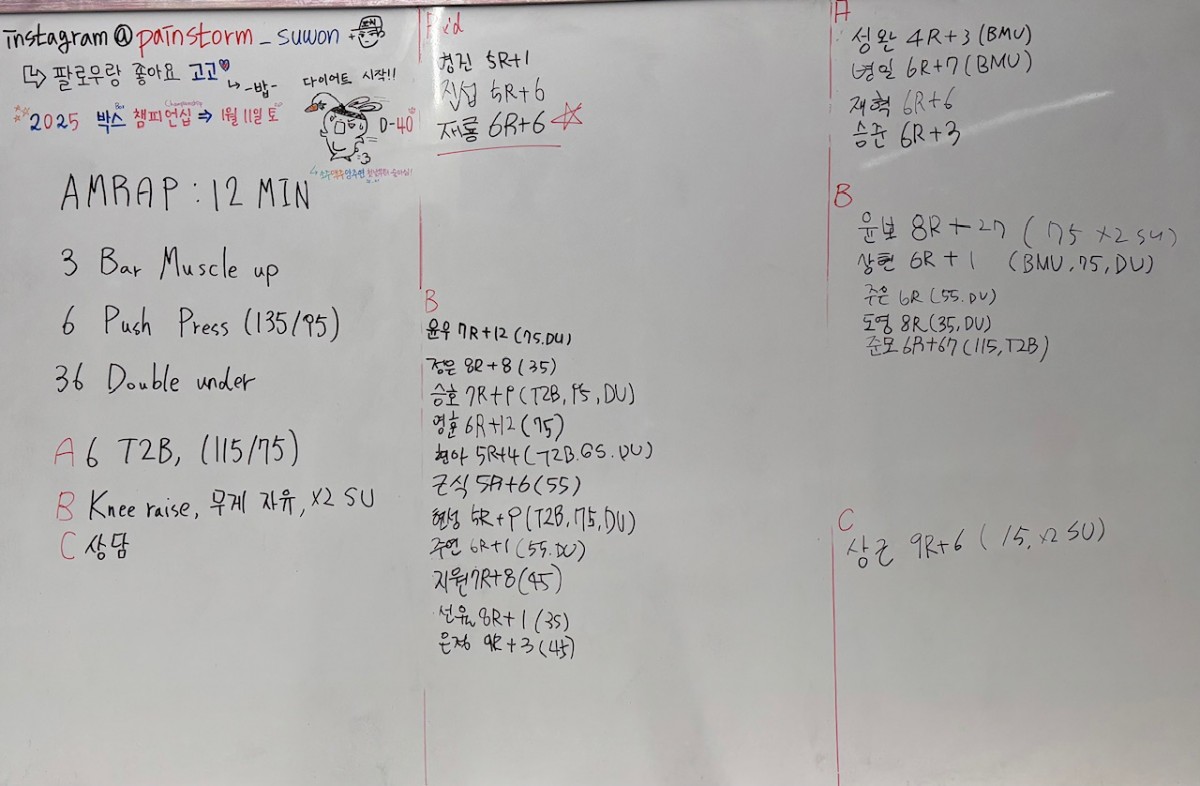 instagram@painstorm_suwon +
팔로우랑 좋아요 고고
-밥-
다이어트 시작!!
2025 박스 챔피언십 ⇒ 1월 11일 토
Box
Championship
D-40
AMRAP : 12 MIN
3 Bar Muscle up
6 Push Press (135/95)
36 Double under
A 6 T2B, (115/75)
B Knee raise, 무게 자유, x2 SU
C 상담
Rx'd
경진 5R+1
진섭 5R+6
재룡 6R+6
B
윤우 7R+12 (75.DU)
정은 8R+8 (35)
승호 7R+9 (T2B, 95, DU)
영훈 6R+12 (75)
현아 5R+4 (T2B.65.DU)
근식 5R+6 (55)
현성 5R+9 (T2B, 75, DU)
주연 6R+1 (55.DU)
지원 7R+8 (45)
선유 8R+1 (35)
은정 9R+3 (45)
A
성완 4R+3 (BMU)
병일 6R+7 (BMU)
재혁 6R+6
승준 6R+3
B
윤보 8R+27 (75 x2 SU)
상현 6R+1 (BMU, 75, DU)
주은 6R (55.DU)
도영 8R (35, DU)
준모 6R+67 (115, T2B)
C
상근 9R+6 (15, x2 SU)